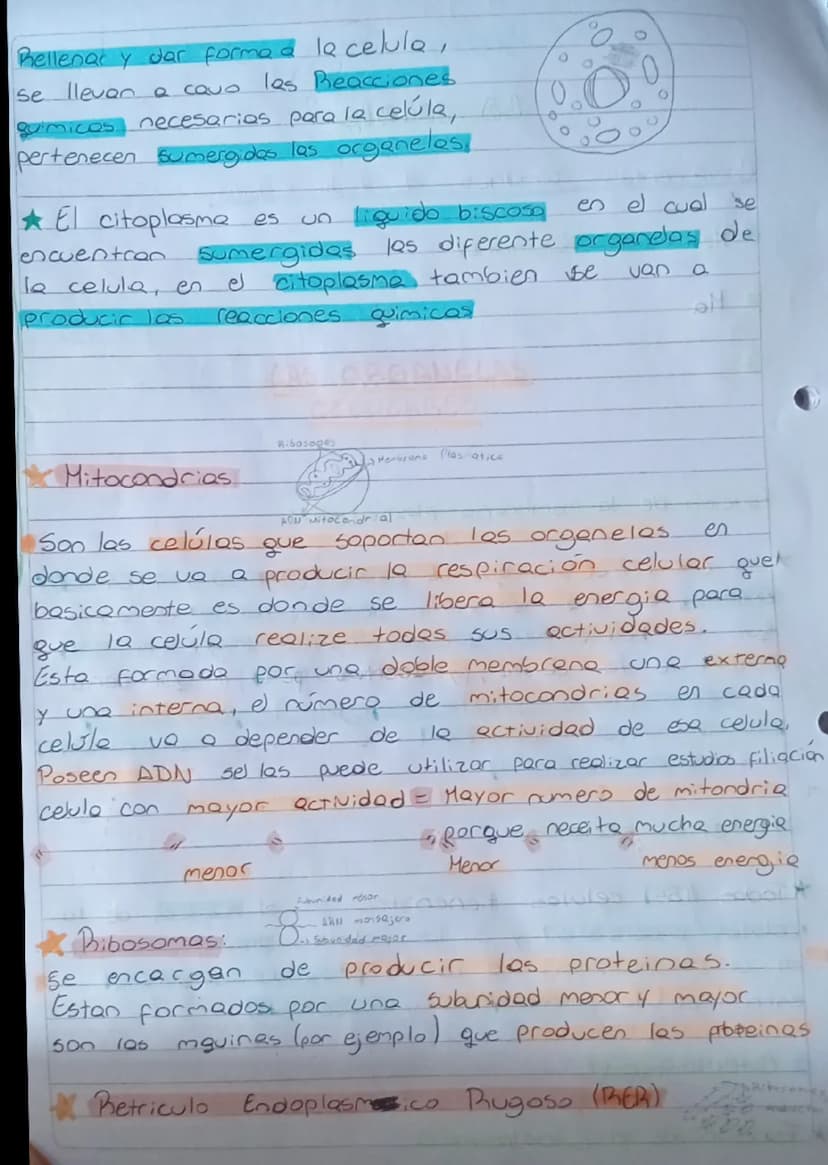 Rellenar y dar forma a la celula,
se llevan a cavo las Reacciones
quimicas necesarias para la celúla,
pertenecen sumergidas las organelas.
★ El citoplasma es un liquido biscoso en el cual se
encuentran sumergidas las diferente organelas de
la celula, en el citoplasma tambien se van a
producir las reacciones quimicas
Ribosomas
Mitocondrias
Membrana Plasmatica
ADN mitocondrial
Son las celúlas que soportan las organelas en
donde se va a producir la respiración celular que
basicamente es donde se libera la energia para
que la celúla realize todas sus actividades.
Esta formada por una doble membrana una externa
y una interna, el número de mitocondrias en cada
celúla va a depender de la actividad de esa celula.
Poseen ADN se las puede utilizar para realizar estudios filiación
celula con mayor actividad = Mayor numero de mitondria
porque neceita mucha energia
" " " menor " Menor " menos energia
subunidad menor
ARN mensajero
Ribosomas: subunidad mayor
se encargan de producir las proteinas.
Estan formados por una subunidad menor y mayor
son las mquinas (por ejemplo) que producen las proteinas
Retriculo Endoplasmico Rugoso (RER)